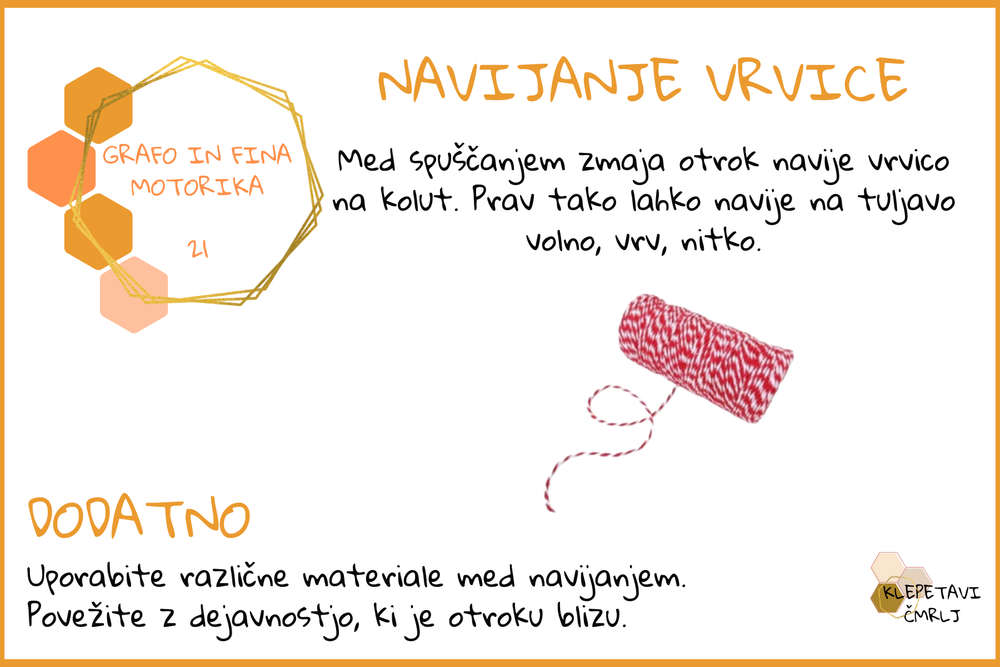 NAVIJANJE VRVICE
GRAFO IN FINA
MOTORIKA
21
Med spuščanjem zmaja otrok navije vrvico
na kolut. Prav tako lahko navije na tuljavo
volno, vrv, nitko.
DODATNO
Uporabite različne materiale med navijanjem.
Povežite z dejavnostjo, ki je otroku blizu.
KLEPETAVI
ČMRLJ